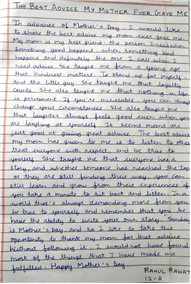 THE BEST ADVICE MY MOTHER EVER GAVE ME
In advance of Mother's Day, I would like
to share the best advice my mom ever gave me.
My mom is my best friend, the person I need when
something good happens, when something
happens and definitely the one I call when I
need advice. She taught me from a young age
that kindness matters. To stand up for myself
and the little guy. She taught me that loyalty
counts. She also taught me that nothing in life
is permanent. If you're miserable you can always
change your circumstances. She also taught me
that laughter always feels good even when you
are laughing at yourself. In short, mom is
just good at giving great advice. The best advice
my mom has given to me is to listen to others,
treat everyone with respect, and be true to
yourself. She taught me that everyone has a
story, and whether someone has reached the top
or they are still finding their way, you can
still learn and grow from their experiences if
you take a minute to sit back and listen. In a
world that's always demanding more from you,
be true to yourself and remember that you
have the ability to write your own story. Sunday
is Mother's Day, and so I like to take this
opportunity to thank my mom for her advice.
Without following it, I would not have found
most of the things that I have made me
fulfilled. Happy Mother's Day
RAHUL RAWAT
12-A